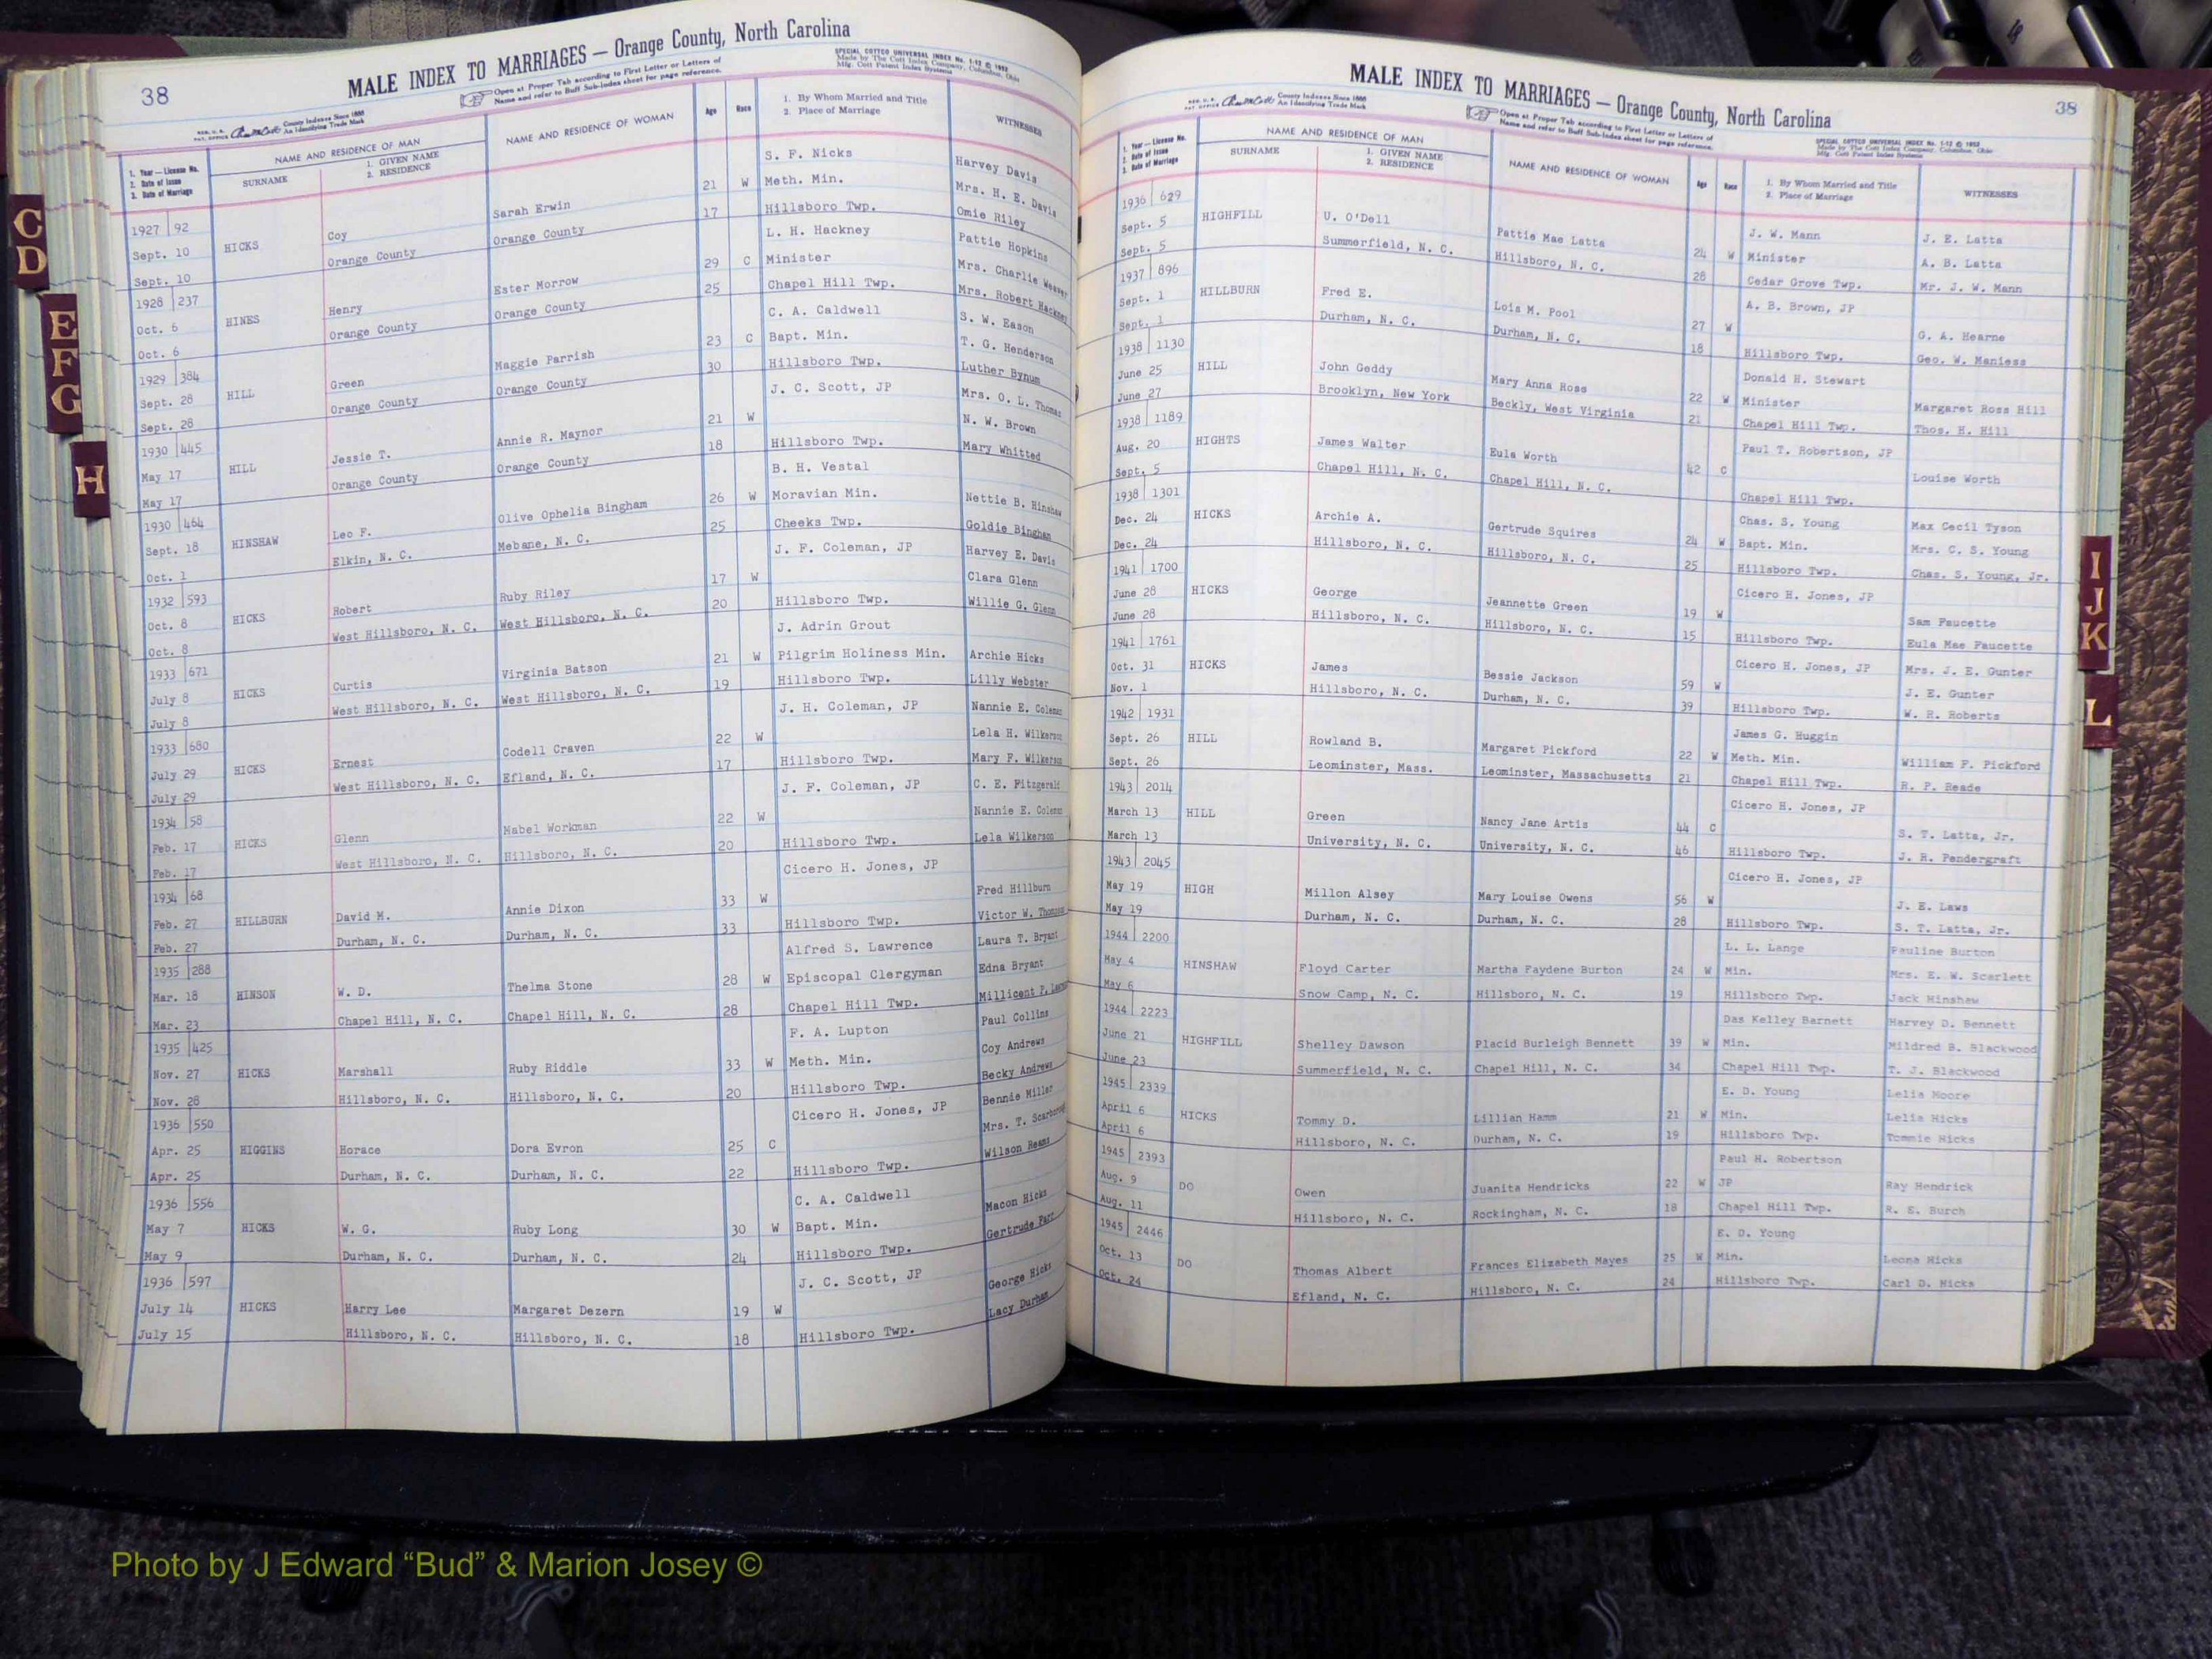 38
MALE INDEX TO MARRIAGES — Orange County, North Carolina
Open at Proper Tab according to First Letter or Letters of
Name and refer to Buff Sub-Index sheet for page reference.
SPECIAL COTTCO UNIVERSAL INDEX No. 1-12 © 1952
Made by The Cott Index Company, Columbus, Ohio
Mfg. Cott Patent Index Systems
County Indexes Since 1888
An Identifying Trade Mark
1. Year — License No.
2. Date of Issue
3. Date of Marriage
NAME AND RESIDENCE OF MAN
SURNAME
1. GIVEN NAME
2. RESIDENCE
NAME AND RESIDENCE OF WOMAN
Age
Race
1. By Whom Married and Title
2. Place of Marriage
WITNESSES
1927 92 S. F. Nicks Harvey Davis
Sept. 10 HICKS Coy Sarah Erwin 21 W Meth. Min. Mrs. H. E. Davis
Sept. 10 Orange County Orange County 17 Hillsboro Twp. Omie Riley
1928 237 L. H. Hackney Pattie Hopkins
Oct. 6 HINES Henry Ester Morrow 29 C Minister Mrs. Charlie Weaver
Oct. 6 Orange County Orange County 25 Chapel Hill Twp. Mrs. Robert Hackney
1929 384 C. A. Caldwell S. W. Eason
Sept. 28 HILL Green Maggie Parrish 23 C Bapt. Min. T. G. Henderson
Sept. 28 Orange County Orange County 30 Hillsboro Twp. Luther Bynum
1930 445 J. C. Scott, JP Mrs. O. L. Thomas
May 17 HILL Jessie T. Annie R. Maynor 21 W N. W. Brown
May 17 Orange County Orange County 18 Hillsboro Twp. Mary Whitted
1930 464 B. H. Vestal
Sept. 18 HINSHAW Leo F. Olive Ophelia Bingham 26 W Moravian Min. Nettie B. Hinshaw
Oct. 1 Elkin, N. C. Mebane, N. C. 25 Cheeks Twp. Goldie Bingham
1932 593 J. F. Coleman, JP Harvey E. Davis
Oct. 8 HICKS Robert Ruby Riley 17 W Clara Glenn
Oct. 8 West Hillsboro, N. C. West Hillsboro, N. C. 20 Hillsboro Twp. Willie G. Glenn
1933 671 J. Adrin Grout
July 8 HICKS Curtis Virginia Batson 21 W Pilgrim Holiness Min. Archie Hicks
July 8 West Hillsboro, N. C. West Hillsboro, N. C. 19 Hillsboro Twp. Lilly Webster
1933 680 J. H. Coleman, JP Nannie E. Coleman
July 29 HICKS Ernest Codell Craven 22 W Lela H. Wilkerson
July 29 West Hillsboro, N. C. Efland, N. C. 17 Hillsboro Twp. Mary F. Wilkerson
1934 58 J. F. Coleman, JP C. E. Fitzgerald
Feb. 17 HICKS Glenn Mabel Workman 22 W Nannie E. Coleman
Feb. 17 West Hillsboro, N. C. Hillsboro, N. C. 20 Hillsboro Twp. Lela Wilkerson
1934 68 Cicero H. Jones, JP
Feb. 27 HILLBURN David M. Annie Dixon 33 W Fred Hillburn
Feb. 27 Durham, N. C. Durham, N. C. 33 Hillsboro Twp. Victor W. Thompson
1935 288 Alfred S. Lawrence Laura T. Bryant
Mar. 18 HINSON W. D. Thelma Stone 28 W Episcopal Clergyman Edna Bryant
Mar. 23 Chapel Hill, N. C. Chapel Hill, N. C. 28 Chapel Hill Twp. Millicent F.
1935 425 F. A. Lupton Paul Collins
Nov. 27 HICKS Marshall Ruby Riddle 33 W Meth. Min. Coy Andrews
Nov. 28 Hillsboro, N. C. Hillsboro, N. C. 20 Hillsboro Twp. Becky Andrews
1936 550 Cicero H. Jones, JP Bennie Miller
Apr. 25 HIGGINS Horace Dora Evron 25 C Mrs. T. Scarborough
Apr. 25 Durham, N. C. Durham, N. C. 22 Hillsboro Twp. Wilson Reams
1936 556 C. A. Caldwell
May 7 HICKS W. G. Ruby Long 30 W Bapt. Min. Macon Hicks
May 9 Durham, N. C. Durham, N. C. 24 Hillsboro Twp. Gertrude
1936 597 J. C. Scott, JP
July 14 HICKS Harry Lee Margaret Dezern 19 W George Hicks
July 15 Hillsboro, N. C. Hillsboro, N. C. 18 Hillsboro Twp. Lacy Durham
MALE INDEX TO MARRIAGES — Orange County, North Carolina
38
County Indexes Since 1888
An Identifying Trade Mark
Open at Proper Tab according to First Letter or Letters of
Name and refer to Buff Sub-Index sheet for page reference.
SPECIAL COTTCO UNIVERSAL INDEX No. 1-12 © 1952
Made by The Cott Index Company, Columbus, Ohio
Mfg. Cott Patent Index Systems
1. Year — License No.
2. Date of Issue
3. Date of Marriage
NAME AND RESIDENCE OF MAN
SURNAME
1. GIVEN NAME
2. RESIDENCE
NAME AND RESIDENCE OF WOMAN
Age
Race
1. By Whom Married and Title
2. Place of Marriage
WITNESSES
1936 629 J. W. Mann J. E. Latta
Sept. 5 HIGHFILL U. O'Dell Pattie Mae Latta 24 W Minister A. B. Latta
Sept. 5 Summerfield, N. C. Hillsboro, N. C. 28 Cedar Grove Twp. Mr. J. W. Mann
1937 896 A. B. Brown, JP
Sept. 1 HILLBURN Fred E. Lois M. Pool 27 W G. A. Hearne
Sept. 1 Durham, N. C. Durham, N. C. 18 Hillsboro Twp. Geo. W. Maniess
1938 1130 Donald H. Stewart
June 25 HILL John Geddy Mary Anna Ross 22 W Minister Margaret Ross Hill
June 27 Brooklyn, New York Beckly, West Virginia 21 Chapel Hill Twp. Thos. H. Hill
1938 1189 Paul T. Robertson, JP
Aug. 20 HIGHTS James Walter Eula Worth 42 C Louise Worth
Sept. 5 Chapel Hill, N. C. Chapel Hill, N. C. Chapel Hill Twp.
1938 1301 Chas. S. Young Max Cecil Tyson
Dec. 24 HICKS Archie A. Gertrude Squires 24 W Bapt. Min. Mrs. C. S. Young
Dec. 24 Hillsboro, N. C. Hillsboro, N. C. 25 Hillsboro Twp. Chas. S. Young, Jr.
1941 1700 Cicero H. Jones, JP
June 28 HICKS George Jeannette Green 19 W Sam Faucette
June 28 Hillsboro, N. C. Hillsboro, N. C. 15 Hillsboro Twp. Eula Mae Faucette
1941 1761 Cicero H. Jones, JP Mrs. J. E. Gunter
Oct. 31 HICKS James Bessie Jackson 59 W J. E. Gunter
Nov. 1 Hillsboro, N. C. Durham, N. C. 39 Hillsboro Twp. W. R. Roberts
1942 1931 James G. Huggin
Sept. 26 HILL Rowland B. Margaret Pickford 22 W Meth. Min. William F. Pickford
Sept. 26 Leominster, Mass. Leominster, Massachusetts 21 Chapel Hill Twp. R. P. Reade
1943 2014 Cicero H. Jones, JP
March 13 HILL Green Nancy Jane Artis 44 C S. T. Latta, Jr.
March 13 University, N. C. University, N. C. 46 Hillsboro Twp. J. R. Pendergraft
1943 2045 Cicero H. Jones, JP
May 19 HIGH Millon Alsey Mary Louise Owens 56 W J. E. Laws
May 19 Durham, N. C. Durham, N. C. 28 Hillsboro Twp. S. T. Latta, Jr.
1944 2200 L. L. Lange Pauline Burton
May 4 HINSHAW Floyd Carter Martha Faydene Burton 24 W Min. Mrs. E. W. Scarlett
May 6 Snow Camp, N. C. Hillsboro, N. C. 19 Hillsboro Twp. Jack Hinshaw
1944 2223 Das Kelley Barnett Harvey D. Bennett
June 21 HIGHFILL Shelley Dawson Placid Burleigh Bennett 39 W Min. Mildred B. Blackwood
June 23 Summerfield, N. C. Chapel Hill, N. C. 34 Chapel Hill Twp. T. J. Blackwood
1945 2339 E. D. Young Lelia Moore
April 6 HICKS Tommy D. Lillian Hamm 21 W Min. Lelia Hicks
April 6 Hillsboro, N. C. Durham, N. C. 19 Hillsboro Twp. Tommie Hicks
1945 2393 Paul H. Robertson
Aug. 9 DO Owen Juanita Hendricks 22 W JP Ray Hendrick
Aug. 11 Hillsboro, N. C. Rockingham, N. C. 18 Chapel Hill Twp. R. E. Burch
1945 2446 E. D. Young
Oct. 13 DO Thomas Albert Frances Elizabeth Hayes 25 W Min. Leona Hicks
Oct. 24 Efland, N. C. Hillsboro, N. C. 24 Hillsboro Twp. Carl D. Hicks
C
D
E
F
G
H
I
J
K
L
Photo by J Edward “Bud” & Marion Josey ©